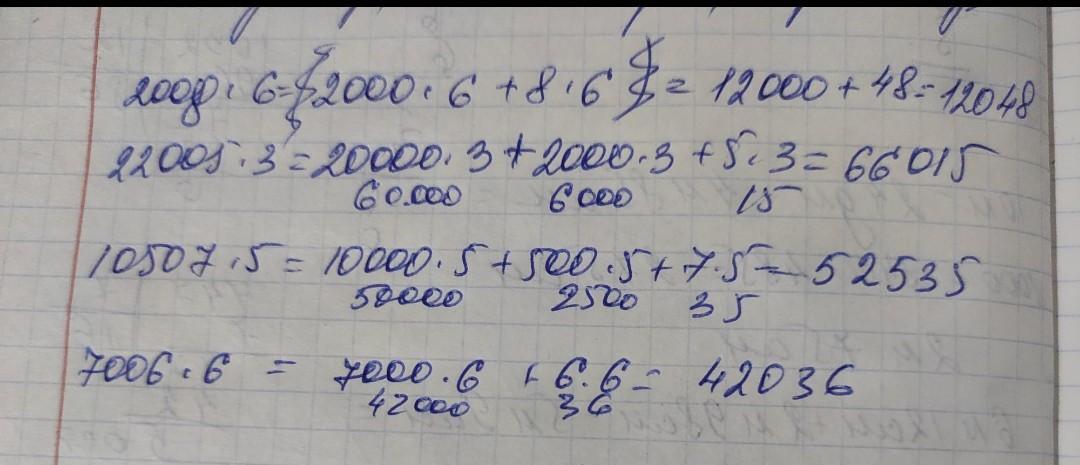 2008·6=2000·6+8·6=12000+48=12048
22005·3=20000·3+2000·3+5·3=66015
60.000 6000 15
10507·5=10000·5+500·5+7·5=52535
50000 2500 35
7006·6 = 7000·6 + 6·6= 42036
42000 36